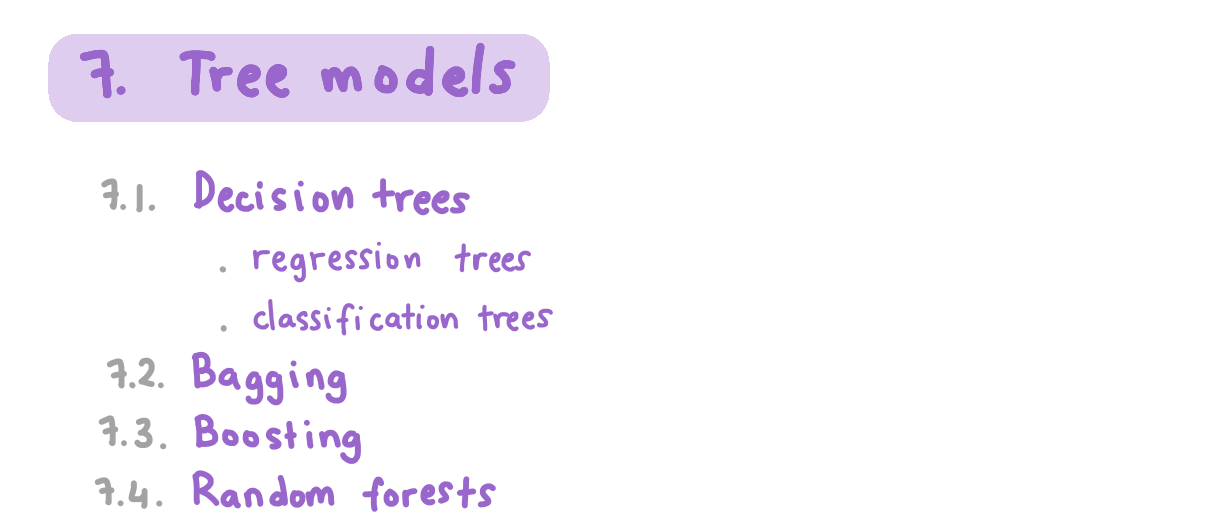 7. Tree models
7.1. Decision trees
. regression trees
. classification trees
7.2. Bagging
7.3. Boosting
7.4. Random forests